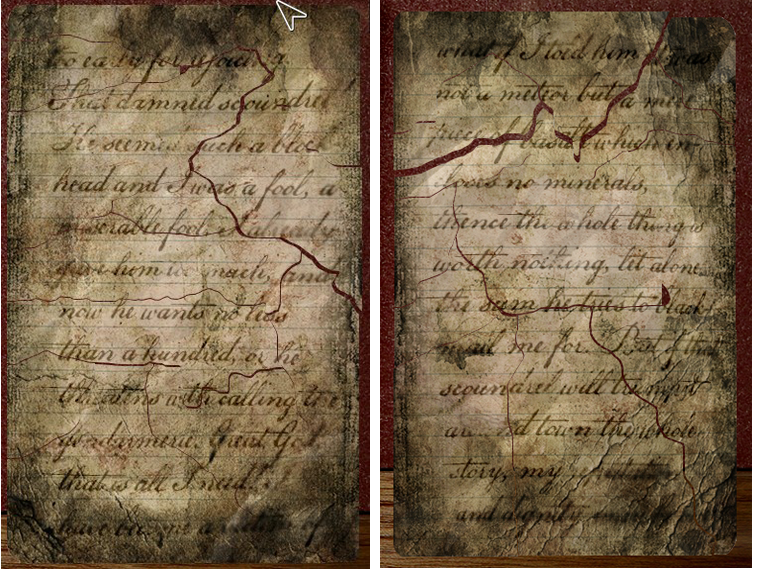 too early for rejoicing.
That damned scoundrel!
He seemed such a block
head and I was a fool, a
miserable fool. I already
gave him too much, and
now he wants no less
than a hundred, or he
threatens with calling the
gendarmerie. Great God
that is all I need!
have become a
what if I told him it was
not a meteor but a mere
piece of basalt which en-
closes no minerals,
thence the whole thing is
worth nothing, let alone
the sum he tries to black-
mail me for. But if that
scoundrel will trumpet
around town the whole
story, my
and dignity